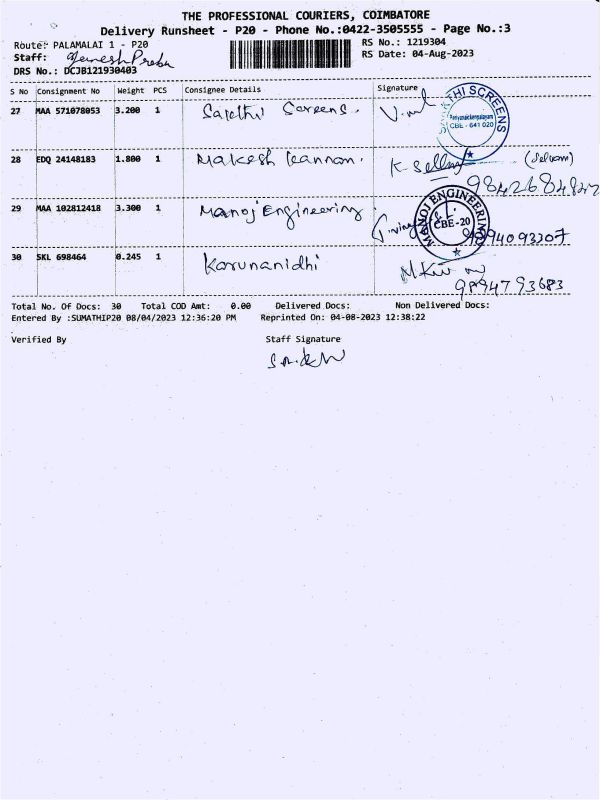 THE PROFESSIONAL COURIERS, COIMBATORE
Delivery Runsheet - P20 - Phone No.:0422-3505555 - Page No.:3
Route: PALAMALAI 1 - P20 RS No.: 1219304
Staff: Ganesh Prabu RS Date: 04-Aug-2023
DRS No.: DCJB121930403
S No Consignment No Weight PCS Consignee Details Signature
27 MAA 571078053 3.200 1 Sakthi Screens.
SAKTHI SCREENS
CBE - 641 020
28 EDQ 24148183 1.800 1 Makesh Kannan. (Selvam)
29 MAA 102812418 3.300 1 Manoj Engineering
MANOJ ENGINEERING
CBE-20
30 SKL 698464 0.245 1 Karunanidhi
9894793683
Total No. Of Docs: 30 Total COD Amt: 0.00 Delivered Docs: Non Delivered Docs:
Entered By :SUMATHIP20 08/04/2023 12:36:20 PM Reprinted On: 04-08-2023 12:38:22
Verified By Staff Signature